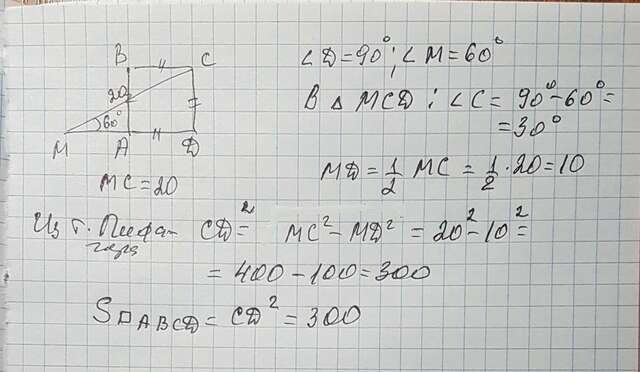 B C
20
60°
M A D
MC = 20
∠D = 90°; ∠M = 60°
В △ MCD: ∠C = 90° - 60° =
= 30°
MD = 1/2 MC = 1/2 · 20 = 10
Из т. Пифа- CD² = MC² - MD² = 20² - 10² =
гора
= 400 - 100 = 300
S□ABCD = CD² = 300